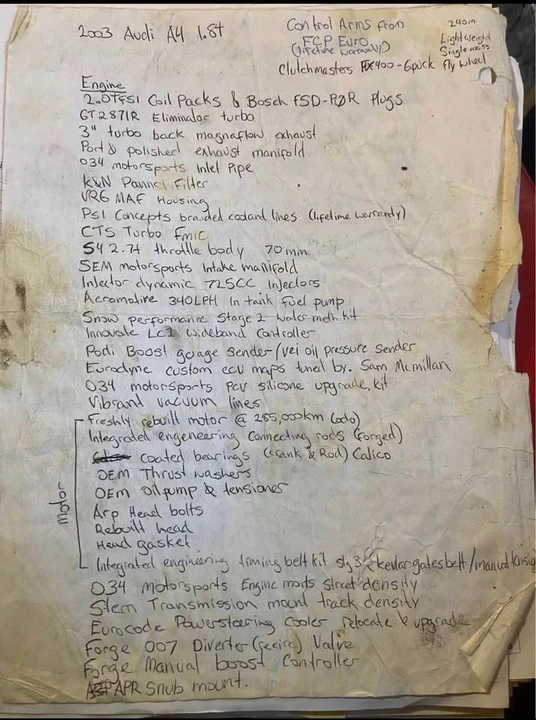 2003 Audi A4 1.8t
Control Arms from
FCP Euro
(lifetime warranty)
240m
Lightweight
Single mass
fly wheel
Clutchmasters FX400-6puck
Engine
2.0TFSI Coil Packs & Bosch FSD-PØR Plugs
GT2871R Eliminator turbo
3" turbo back magnaflow exhaust
Port & polished exhaust manifold
034 motorsports Inlet Pipe
K&N Pannel Filter
VR6 MAF Housing
PSI Concepts braided coolant lines (lifetime warranty)
CTS Turbo Fmic
S4 2.7t throttle body 70mm
SEM motorsports Intake manifold
Injector dynamic 725cc Injectors
Aeromotive 340LPH In tank fuel pump
Snow performance Stage 2 water meth kit
Innovate LC1 wideband Controller
Podi Boost gauge sender/vei oil pressure sender
Eurodyne custom ecu maps tuned by: Sam Mcmillan
034 motorsports Pcv silicone upgrade kit
Vibrant vacuum lines
motor
Freshly rebuilt motor @ 285,000km (odo)
Integrated engeneering connecting rods (forged)
coated bearings (crank & Rod) Calico
OEM Thrust washers
OEM oil pump & tensioner
Arp Head bolts
Rebuilt head
Head gasket
Integrated engineering timing belt kit kevlar gates belt/manual
034 Motorsports Engine mounts street density
Stem Transmission mount track density
Eurocode Powersteering Cooler relocate & upgrade
Forge 007 Diverter (recirc) Valve
Forge Manual boost Controller
APR Snub mount.